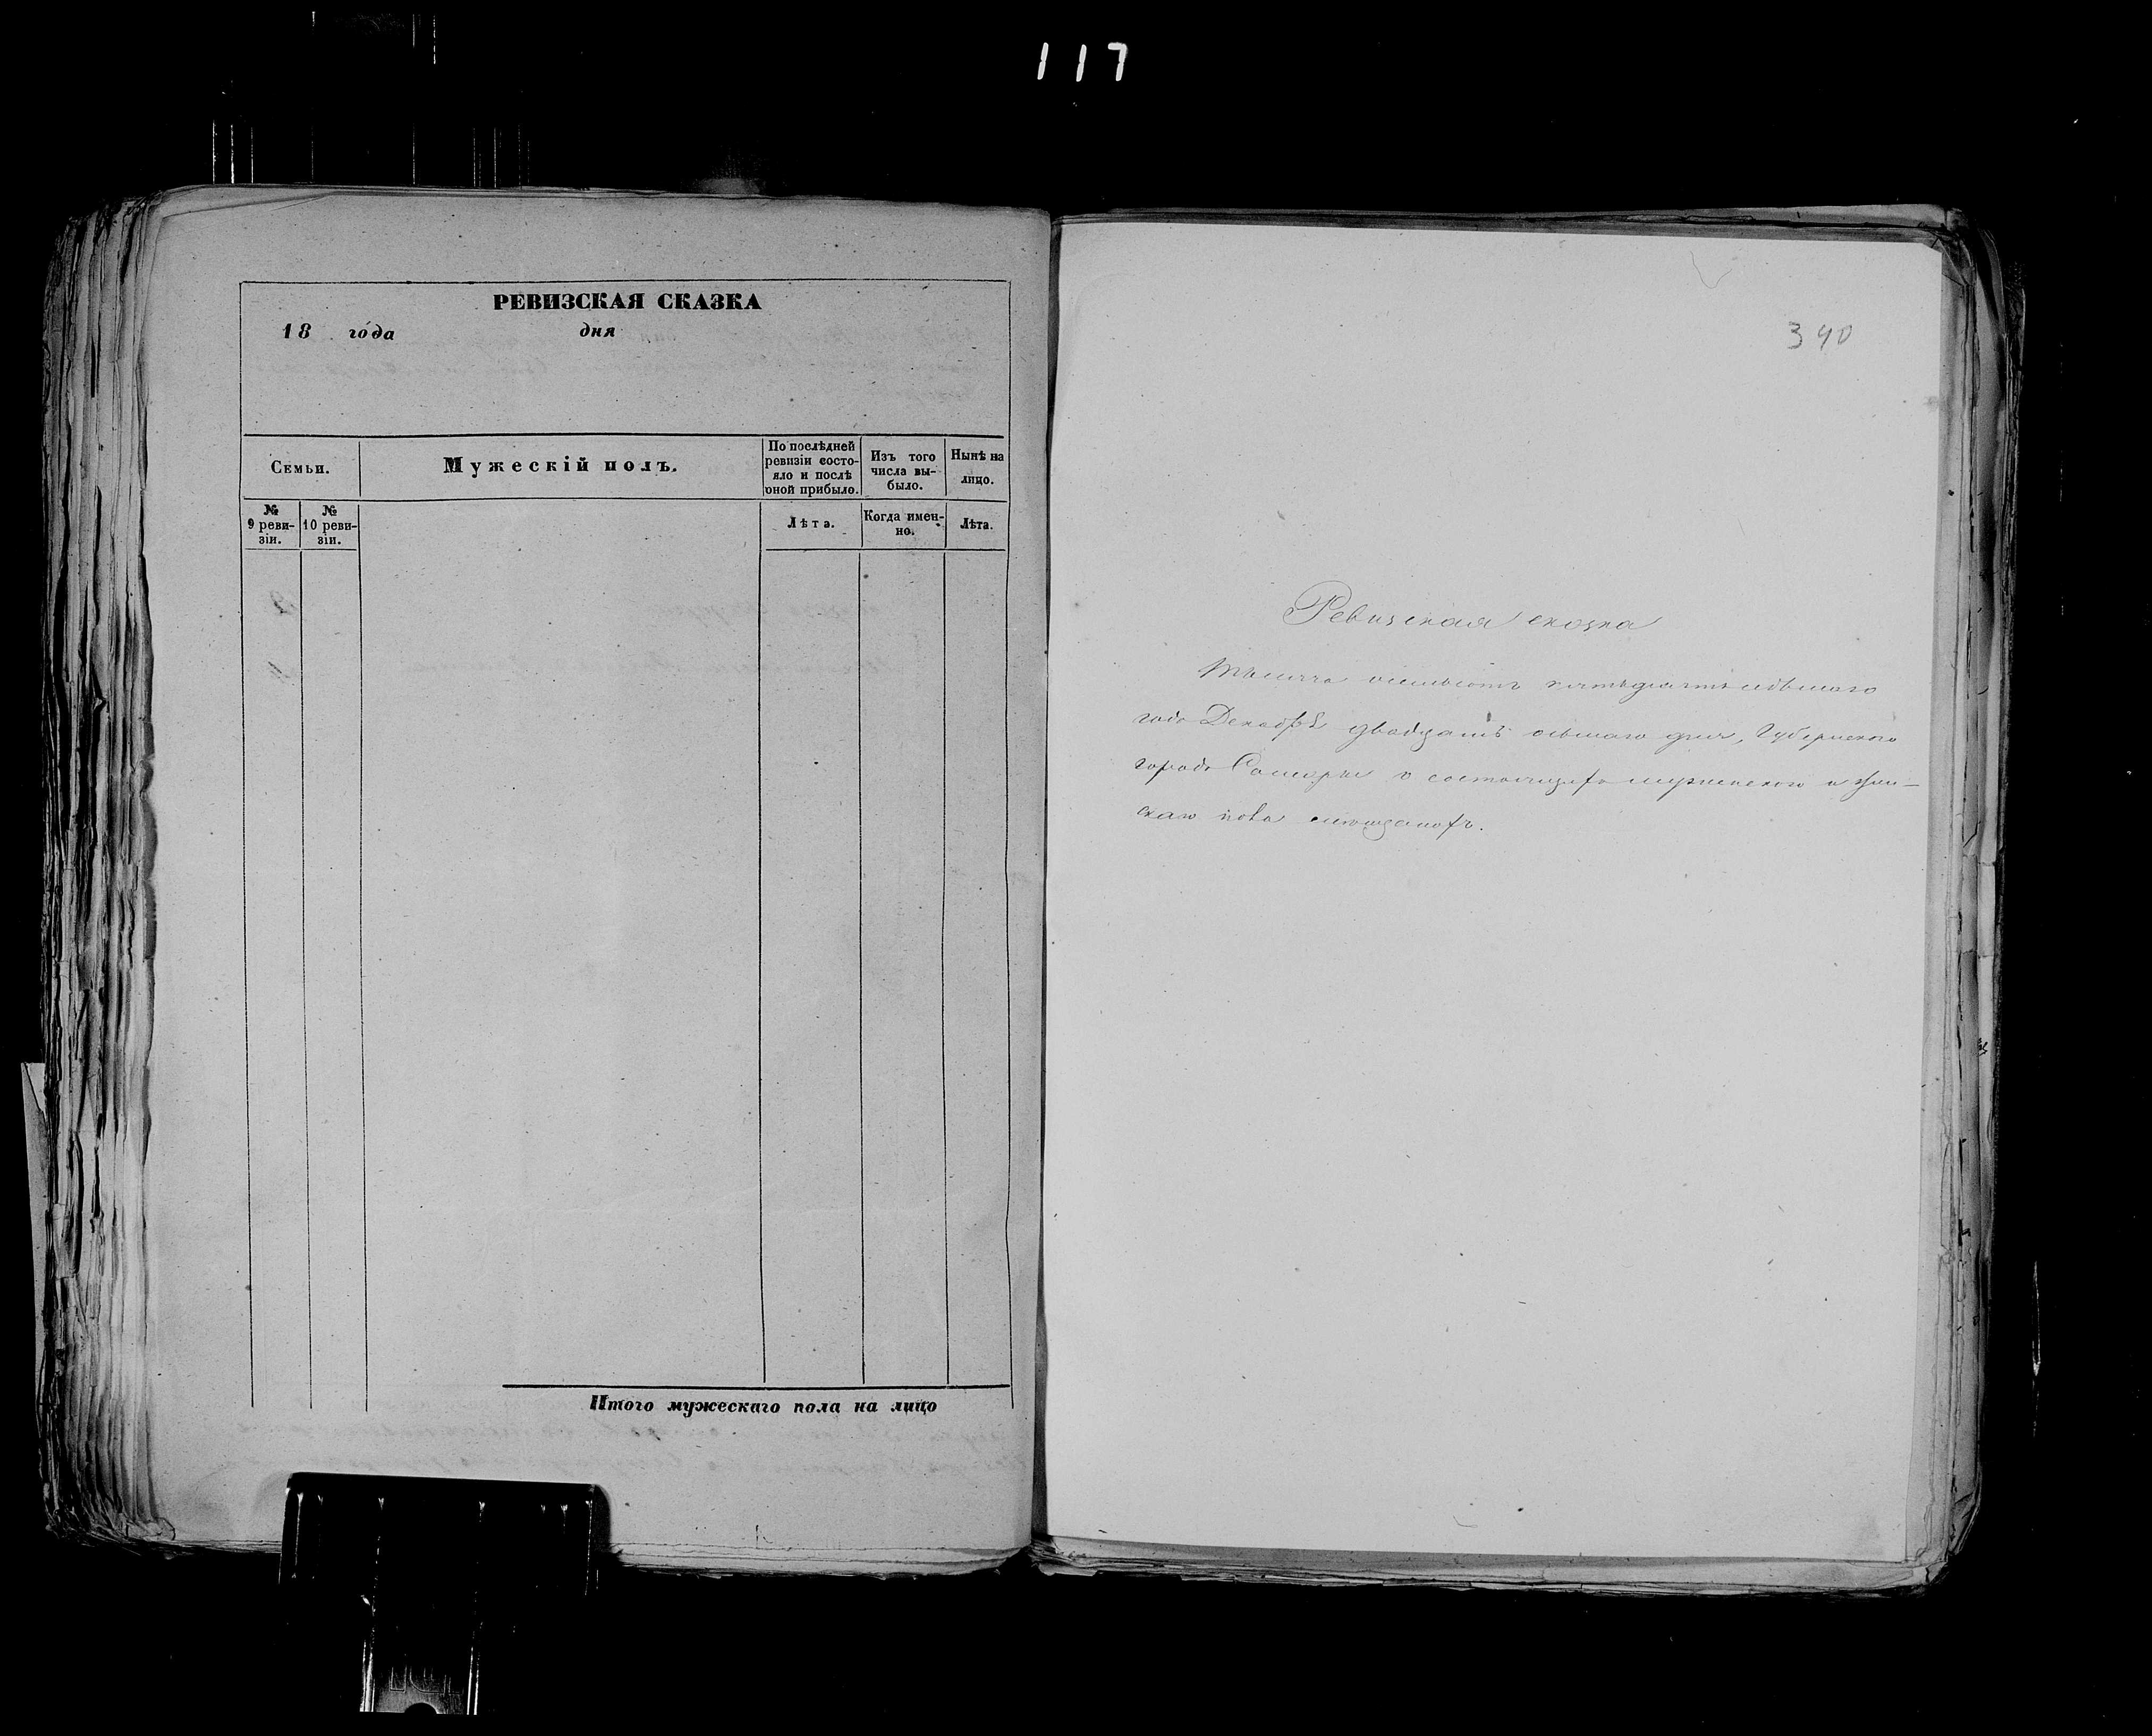 117
РЕВИЗСКАЯ СКАЗКА
18 года дня
Семьи.
Мужескій полъ.
По послѣдней
ревизіи состо-
яло и послѣ
оной прибыло.
Изъ того
числа вы-
было.
Нынѣ на
лицо.
№
9 реви-
зіи.
№
10 реви-
зіи.
Лѣта.
Когда имен-
но.
Лѣта.
Итого мужескаго пола на лицо
340
Ревизская сказка
Тысяча восемьсотъ пятьдесятъ седьмаго
года Декабря двадцать осьмаго дня, Губернскаго
города Самары о состоящихъ мужескаго и жен-
скаго пола мѣщанахъ.